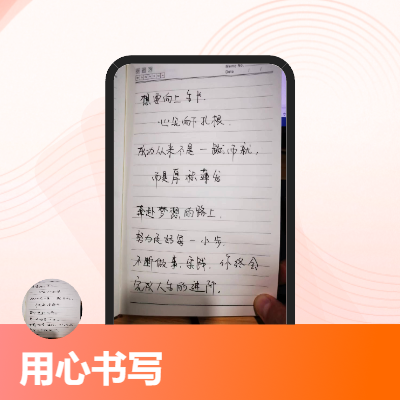 Date
想要向上生长
必先向下扎根
成功从来不是一蹴而就,
而是厚积薄发
奔赴梦想的路上
努力走好每一小步
不断做事,实践,你终会
完成人生的进阶.
用心书写